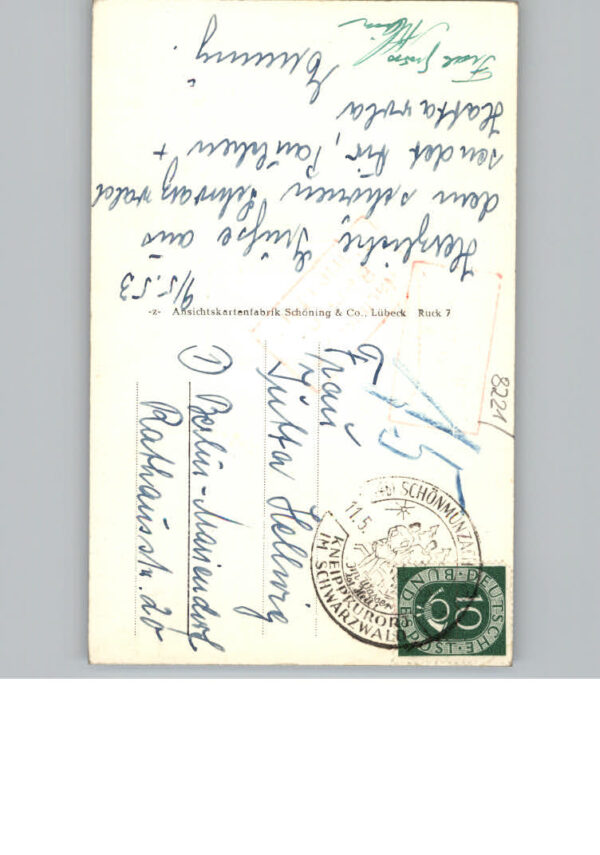 9/5.53
Herzliche Grüße aus
dem schönen Schwarzwald
sendet Dir, Paulchen +
Emmy.
-z- Ansichtskartenfabrik Schöning & Co., Lübeck Ruck 7
Frau
Jutta Hellwig
① Berlin-Mariendorf
Rathausstr. 20
8221/
SCHÖNMÜNZACH
11.5.
KNEIPPKURORT
IM SCHWARZWALD
DEUTSCHE
BUNDESPOST
10